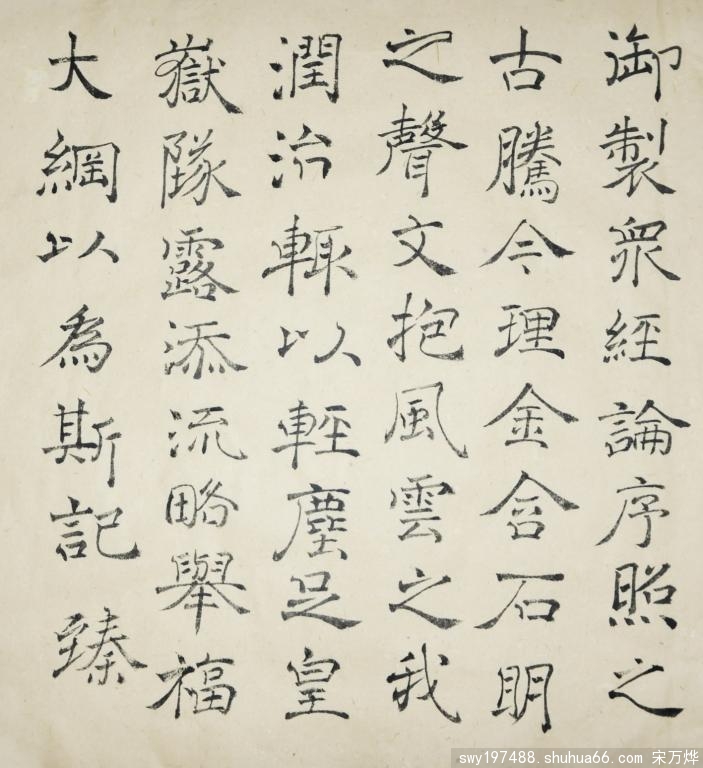 御製眾經論序照之
古騰今理金含石明
之聲文抱風雲之我
潤治輒以輕塵足皇
嶽隊露添流略舉福
大綱以為斯記臻
swy197488.shuhua66.com 宋万烨